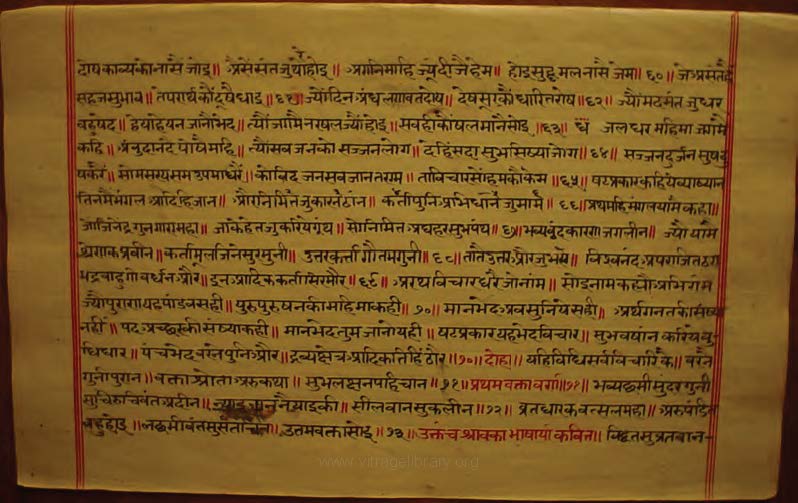 दोषकाव्यकोनासैजोइ॥ अैसेंसंतजुथोहोइ॥ अगनिमाहिज्यूंदीजैहेम॥ होइसुद्धमलनासैजेम॥६०॥ जेअसंतहै
सहजसुभाव॥ तेपरार्थकौंदूषैधाइ॥६१॥ ज्योंदिनअंधलगावतदोष॥ देषसुरकौंधारितरोष॥६२॥ ज्यौंमदमंतजुधर
वहषद॥ हेयाहेयनजानौंभेद॥ त्यौंजामैनरषलज्योंहोइ॥ सवहीकौंषलमानैसोइ॥६३॥ जलधरमहिमाजगमै
कहि॥ अंवुदानंदपोषैमाहि॥ त्यौंसवजनकोसज्जनलोग॥ देहिंसदासुभसिष्याजोग॥६४॥ सज्जनदुर्जनसुषदु
षकरैं॥ सोमसरपसमउपमाधरैं॥ कोविदजनसवजानतराम॥ ताविचारसोंहमकौंकेम॥६५॥ षटप्रकारकहियेव्याष्यान
तिनमैंमंगलआदिहिजान॥ औरनिमितजुकारनठांन॥ कर्तापुनिअभिधानजुमान॥६६॥ प्रथमहिमंगलयामैंकहा॥
जोजिनेंद्रगुनगारामहा॥ जाकेहेतजुकरियेग्रंथ॥ सोनिमित्तअघहरसुभपंथ॥६७॥ भव्यवृंदकारणजगलीन॥ ज्यौंयामै
श्रेणिकप्रवीन॥ कर्तामूलजिनेसुरमुनी॥ उत्तरकर्तागौतमगुनी॥६८॥ तातैंउत्तरऔरजुभये॥ विश्वनंदअपराजितठए
भद्रवाहुगोवर्धनऔर॥ इनआदिककर्तासिरमौर॥६९॥ अरथविचारधरैजोनांम॥ सोइनामकह्योअभिराम
ज्यौंपुराणयहपांडवसही॥ पुरुपुरुषनकीमहिमाकही॥७०॥ मानभेदअवसुनियेसही॥ अर्थगनतकीसंष्या
नहीं॥ पदअच्छरकीसंष्याकही॥ मानभेदतुमजानोयही॥ षटप्रकारयहभेदविचार॥ सुभवषानकरियेवु
धिधार॥ पंचभेदवरनेपुनिऔर॥ द्रव्यक्षेत्रआदिकतिहिंठौर॥७०॥ दोहा॥ यहिविधिसर्वविचारिकै॥ वरनै
गुनीपुरान॥ वक्ताश्रोताअरुकथा॥ सुभलक्षनपहिचान॥७१॥ प्रथमवक्तावर्ण॥७१॥ भव्यछमीसुंदरगुनी
सुचिरुचिवंतप्रवीन॥ सीलवानसुकलीन॥७२॥ व्रतधारकवत्सलमहा॥ अरुपंडित
वहुहोइ॥ लछमीवंतसुसंतचित॥ उत्तमवक्तासोइ॥७३॥ उक्तंचश्रावकाभाषायांकवित्त॥ विद्वतसुव्रतवान-
www.vitragelibrary.org